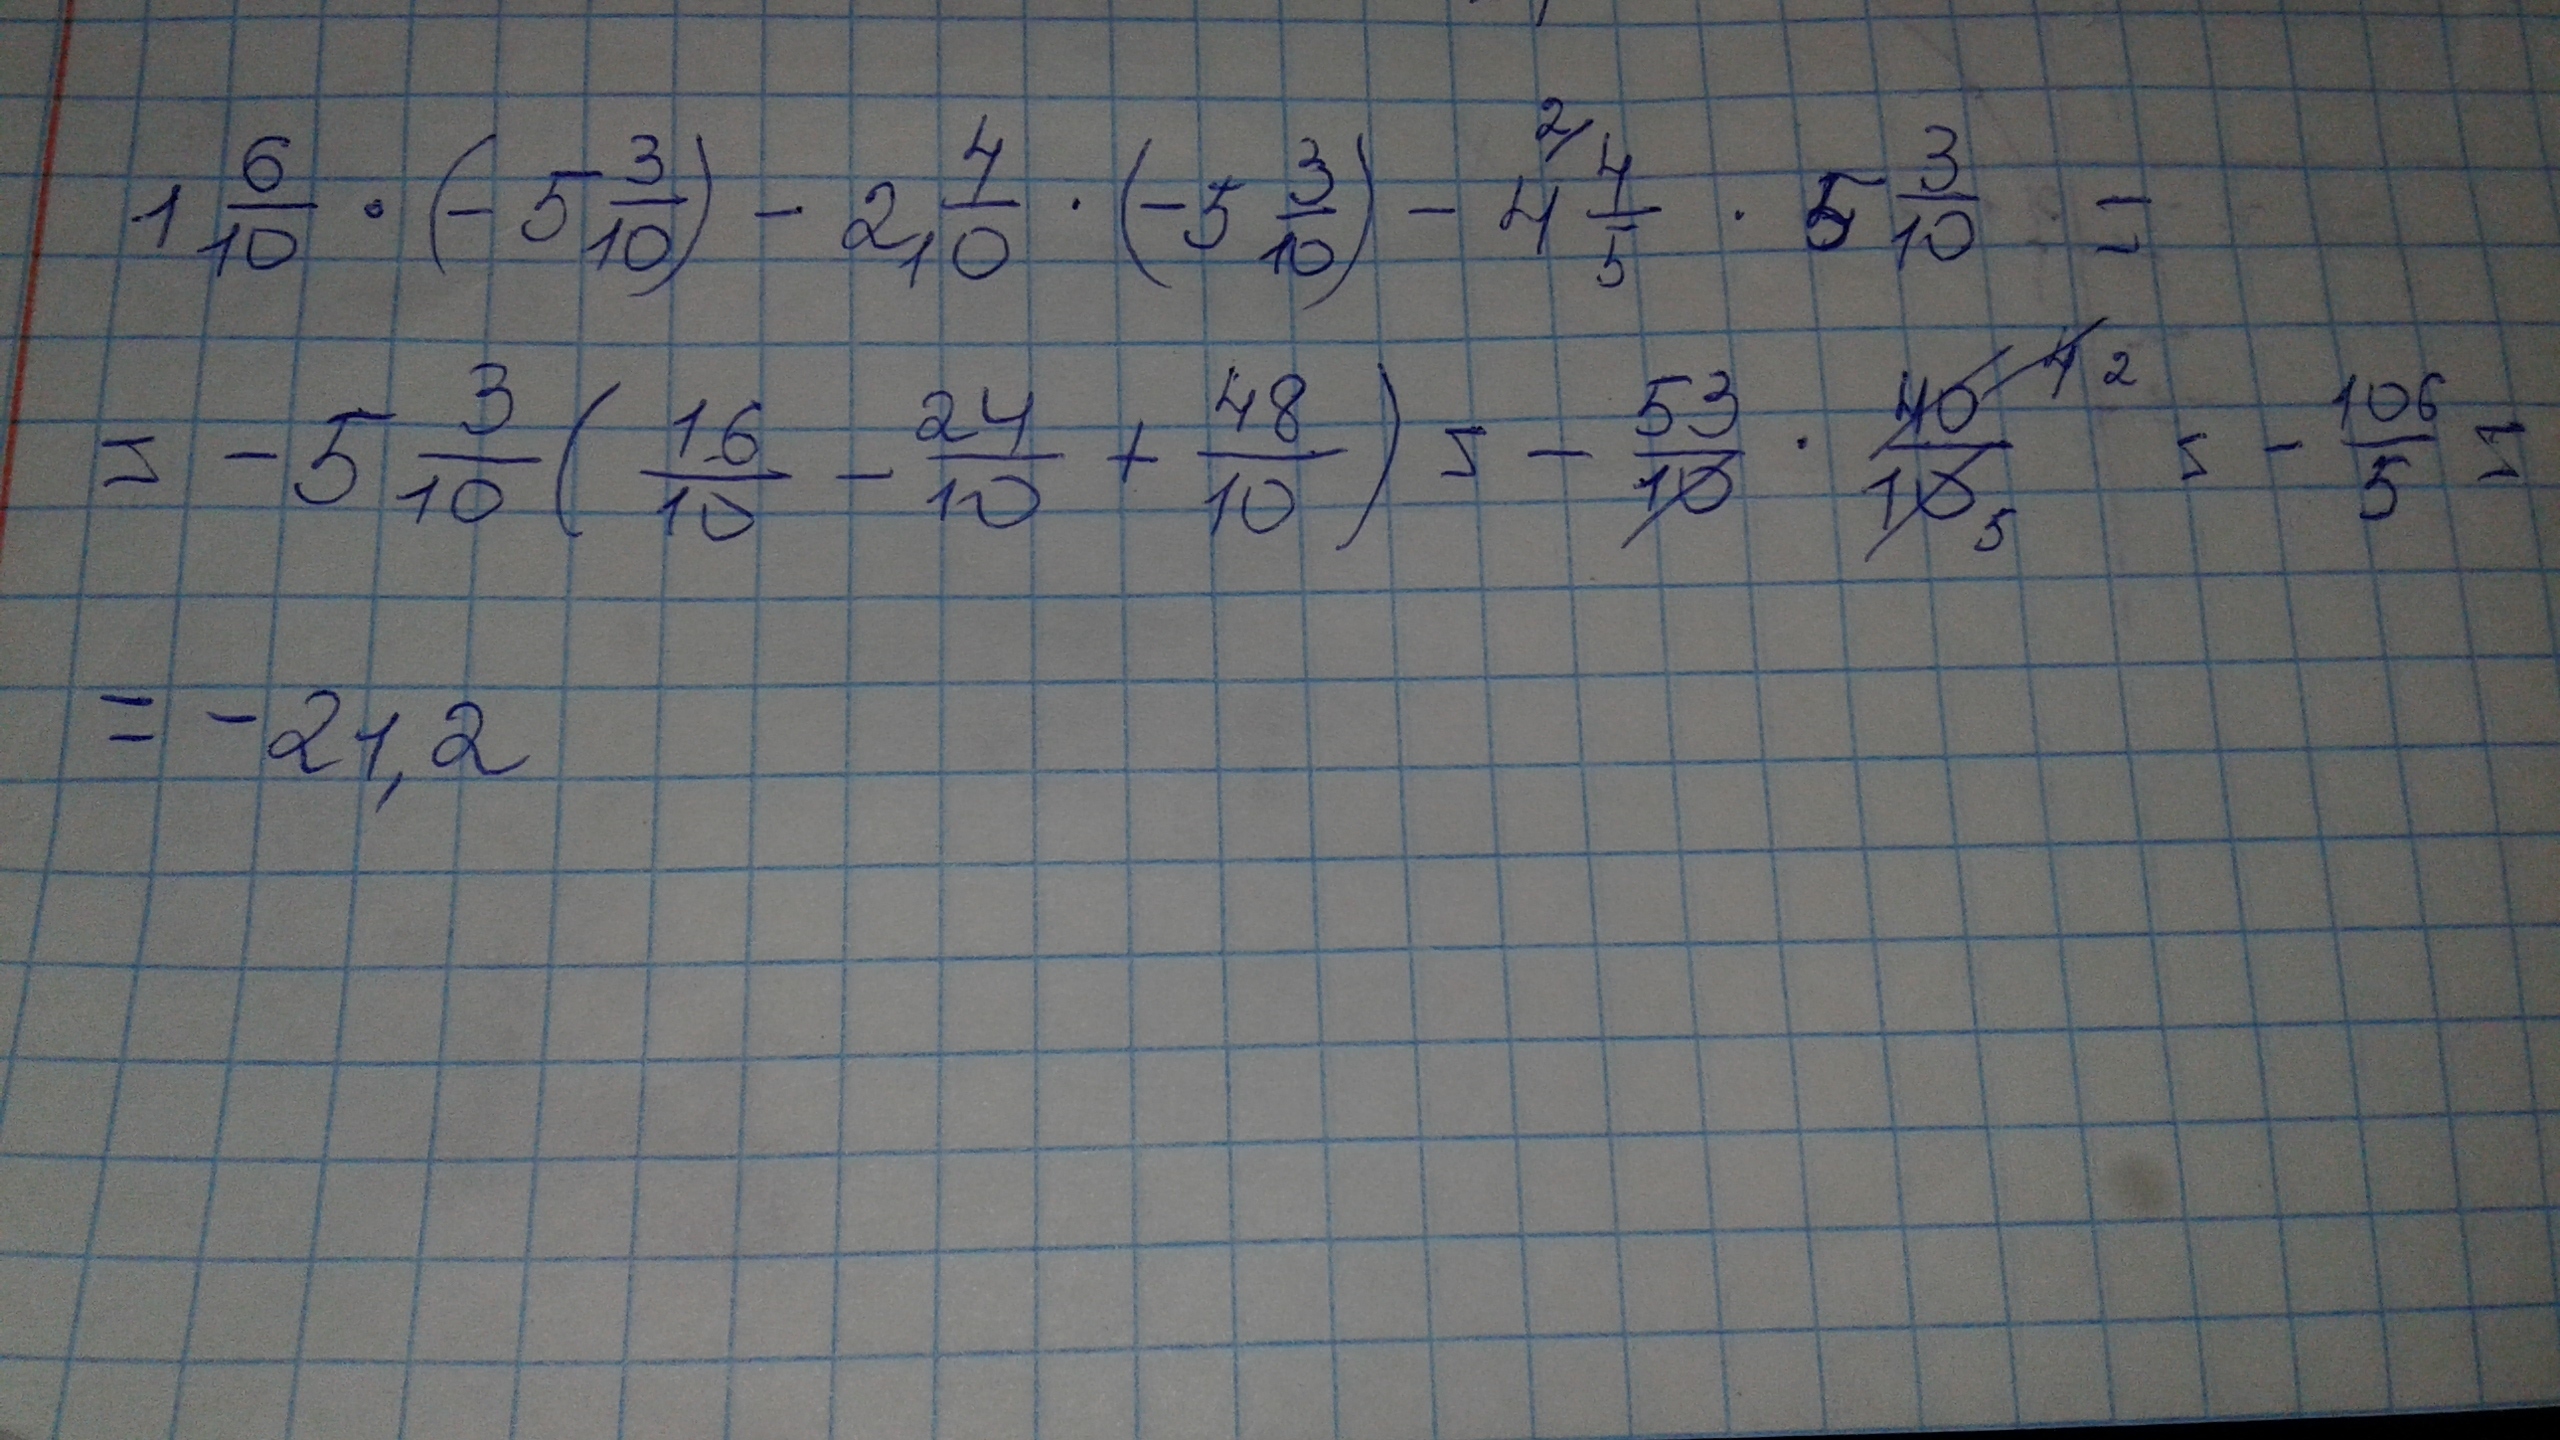 1 6/10 · (-5 3/10) - 2 4/10 · (-5 3/10) - 4 2/ 4/5 · 5 3/10 =
= -5 3/10 (16/10 - 24/10 + 48/10) = - 53/10 · 40/10 4 2 5 = - 106/5 =
= -21,2